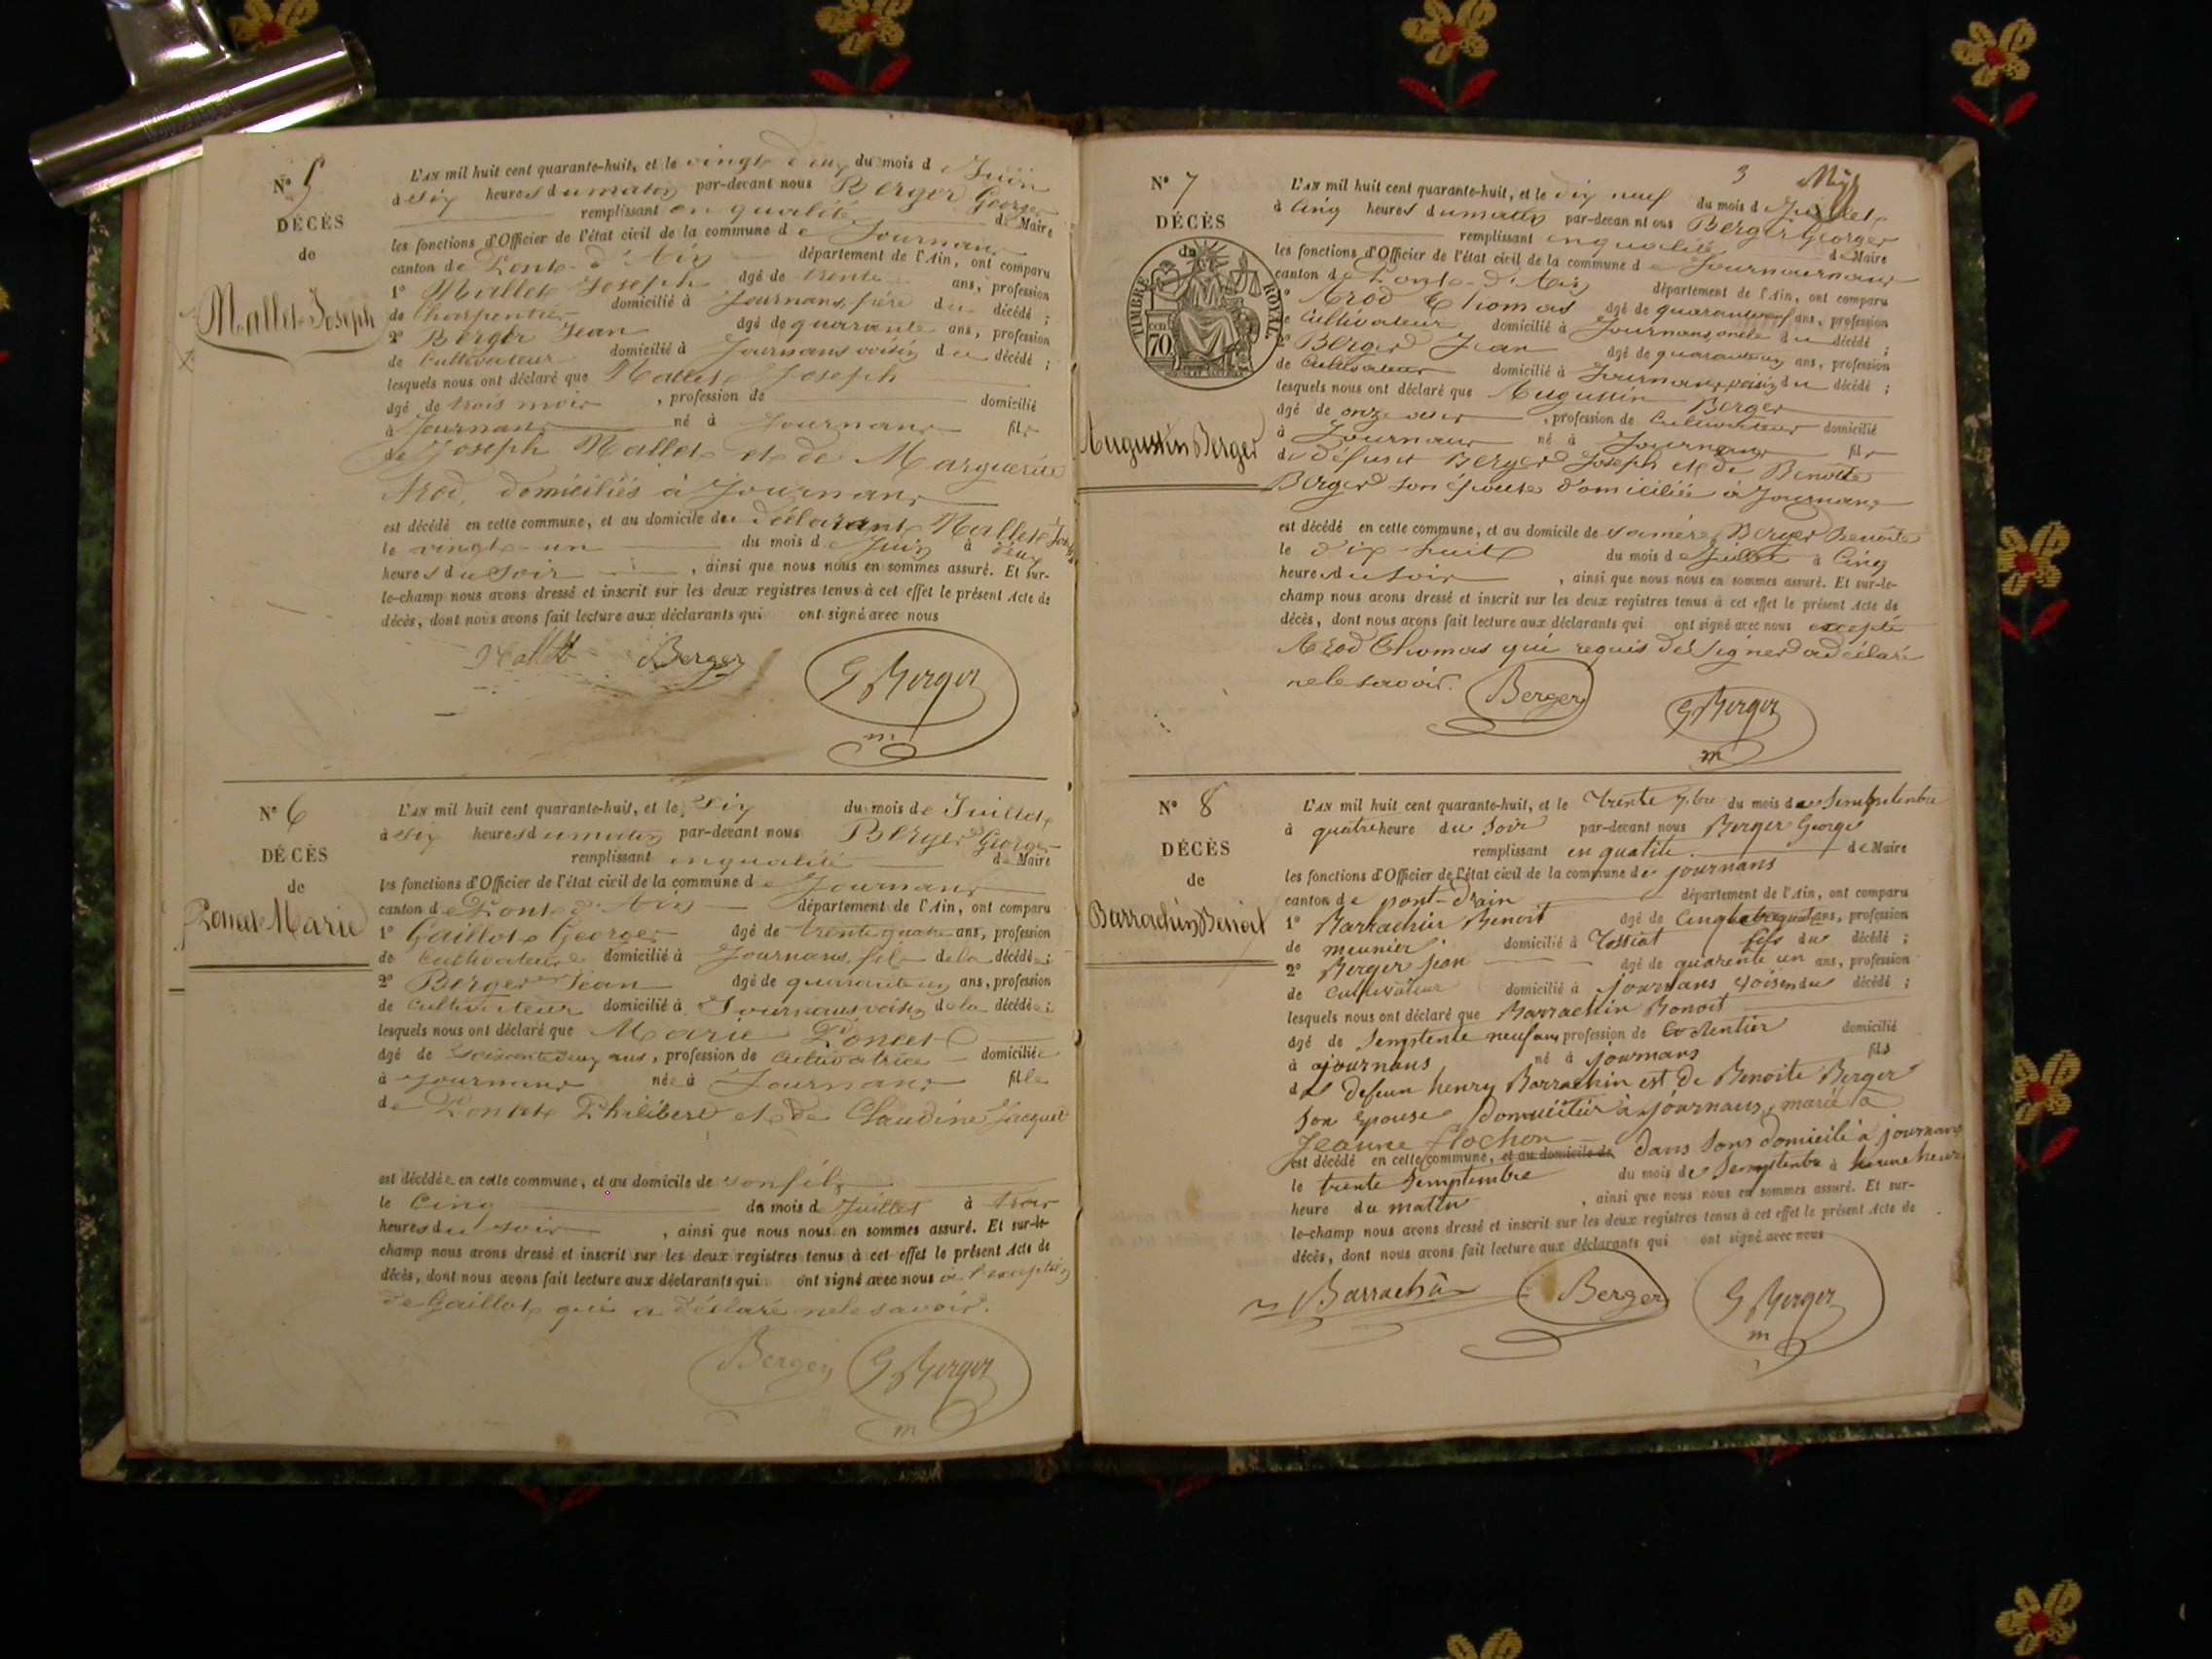 N° 5
DÉCÈS
de
Mallet Joseph
L'AN mil huit cent quarante-huit, et le vingt deux du mois de Juin
à six heures du matin par-devant nous Berger Georges
remplissant en qualité de Maire
les fonctions d'Officier de l'état civil de la commune de Journans
canton de Pont-d'Ain département de l'Ain, ont comparu
1° Mallet Joseph âgé de trente ans, profession
de Charpentier domicilié à Journans, père du décédé ;
2° Berger Jean âgé de quarante ans, profession
de Cultivateur domicilié à Journans voisin du décédé ;
lesquels nous ont déclaré que Mallet Joseph
âgé de trois mois , profession de domicilié
à Journans né à Journans fils
de Joseph Mallet et de Marguerite
Arod, domiciliés à Journans
est décédé en cette commune, et au domicile du déclarant Mallet Joseph
le vingt-un du mois de Juin à deux
heures du soir , ainsi que nous nous en sommes assuré. Et sur-
le-champ nous avons dressé et inscrit sur les deux registres tenus à cet effet le présent Acte de
décès, dont nous avons fait lecture aux déclarants qui ont signé avec nous
Mallet Berger G Berger
m
N° 6
DÉCÈS
de
Poncet Marie
L'AN mil huit cent quarante-huit, et le Six du mois de Juillet
à six heures du matin par-devant nous Berger Georges
remplissant en qualité de Maire
les fonctions d'Officier de l'état civil de la commune de Journans
canton de Pont-d'Ain département de l'Ain, ont comparu
1° Gaillot Georges âgé de trente quatre ans, profession
de Cultivateur domicilié à Journans, fils de la décédée ;
2° Berger Jean âgé de quarante un ans, profession
de Cultivateur domicilié à Journans voisin de la décédée ;
lesquels nous ont déclaré que Marie Poncet
âgé de Soixante deux ans, profession de Cultivatrice domiciliée
à Journans née à Journans fille
de Poncet Philibert et de Claudine Jacquet
est décédée en cette commune, et au domicile de son fils
le Cinq du mois de Juillet à trois
heures du soir , ainsi que nous nous en sommes assuré. Et sur-le-
champ nous avons dressé et inscrit sur les deux registres tenus à cet effet le présent Acte de
décès, dont nous avons fait lecture aux déclarants qui ont signé avec nous à l'exception
de Gaillot qui a déclaré ne le savoir.
Berger G Berger
m
3
N° 7
DÉCÈS
de
TIMBRE ROYAL
70
Augustin Berger
L'AN mil huit cent quarante-huit, et le dix neuf du mois de Juillet
à Cinq heures du matin par-devant nous Berger Georges
remplissant en qualité de Maire
les fonctions d'Officier de l'état civil de la commune de Journournans
canton de Pont-d'Ain département de l'Ain, ont comparu
1° Arod Thomas âgé de quarante neuf ans, profession
de Cultivateur domicilié à Journans, oncle du décédé ;
2° Berger Jean âgé de quarante un ans, profession
de Cultivateur domicilié à Journans, voisin du décédé ;
lesquels nous ont déclaré que Augustin Berger
âgé de onze ans , profession de Cultivateur domicilié
à Journans né à Journans fils
de défunt Berger Joseph et de Benoite
Berger son épouse domiciliée à Journans
est décédé en cette commune, et au domicile de sa mère, Berger Benoite
le dix-huit du mois de Juillet à Cinq
heures du soir , ainsi que nous nous en sommes assuré. Et sur-le-
champ nous avons dressé et inscrit sur les deux registres tenus à cet effet le présent Acte de
décès, dont nous avons fait lecture aux déclarants qui ont signé avec nous excepté
Arod Thomas qui requis de signer a déclaré
ne le savoir. Berger G Berger
m
N° 8
DÉCÈS
de
Barrachin Benoit
L'AN mil huit cent quarante-huit, et le trente 7bre du mois de Semptembre
à quatre heure du soir par-devant nous Berger George
remplissant en qualite de Maire
les fonctions d'Officier de l'état civil de la commune de journans
canton de pont-d'ain département de l'Ain, ont comparu
1° Barrachin Benoit âgé de ans, profession
de meunier domicilié à Tossiat fils du décédé ;
2° Berger jean âgé de quarente un ans, profession
de cultivateur domicilié à journans voisin du décédé ;
lesquels nous ont déclaré que Barrachin Benoit
âgé de Semptente neuf ans profession de domicilié
à ajournans né à journans fils
de defeun henry Barrachin est de Benoite Berger
son epouse à journans, marié à
Jeanne flochon
est décédé en cette commune, et au domicile de dans sons domicile à journans
le trente Semptembre du mois de Semptembre à heure
heure du matin , ainsi que nous nous en sommes assuré. Et sur-
le-champ nous avons dressé et inscrit sur les deux registres tenus à cet effet le présent Acte de
décès, dont nous avons fait lecture aux déclarants qui ont signé avec nous
Barrachin Berger G Berger
m